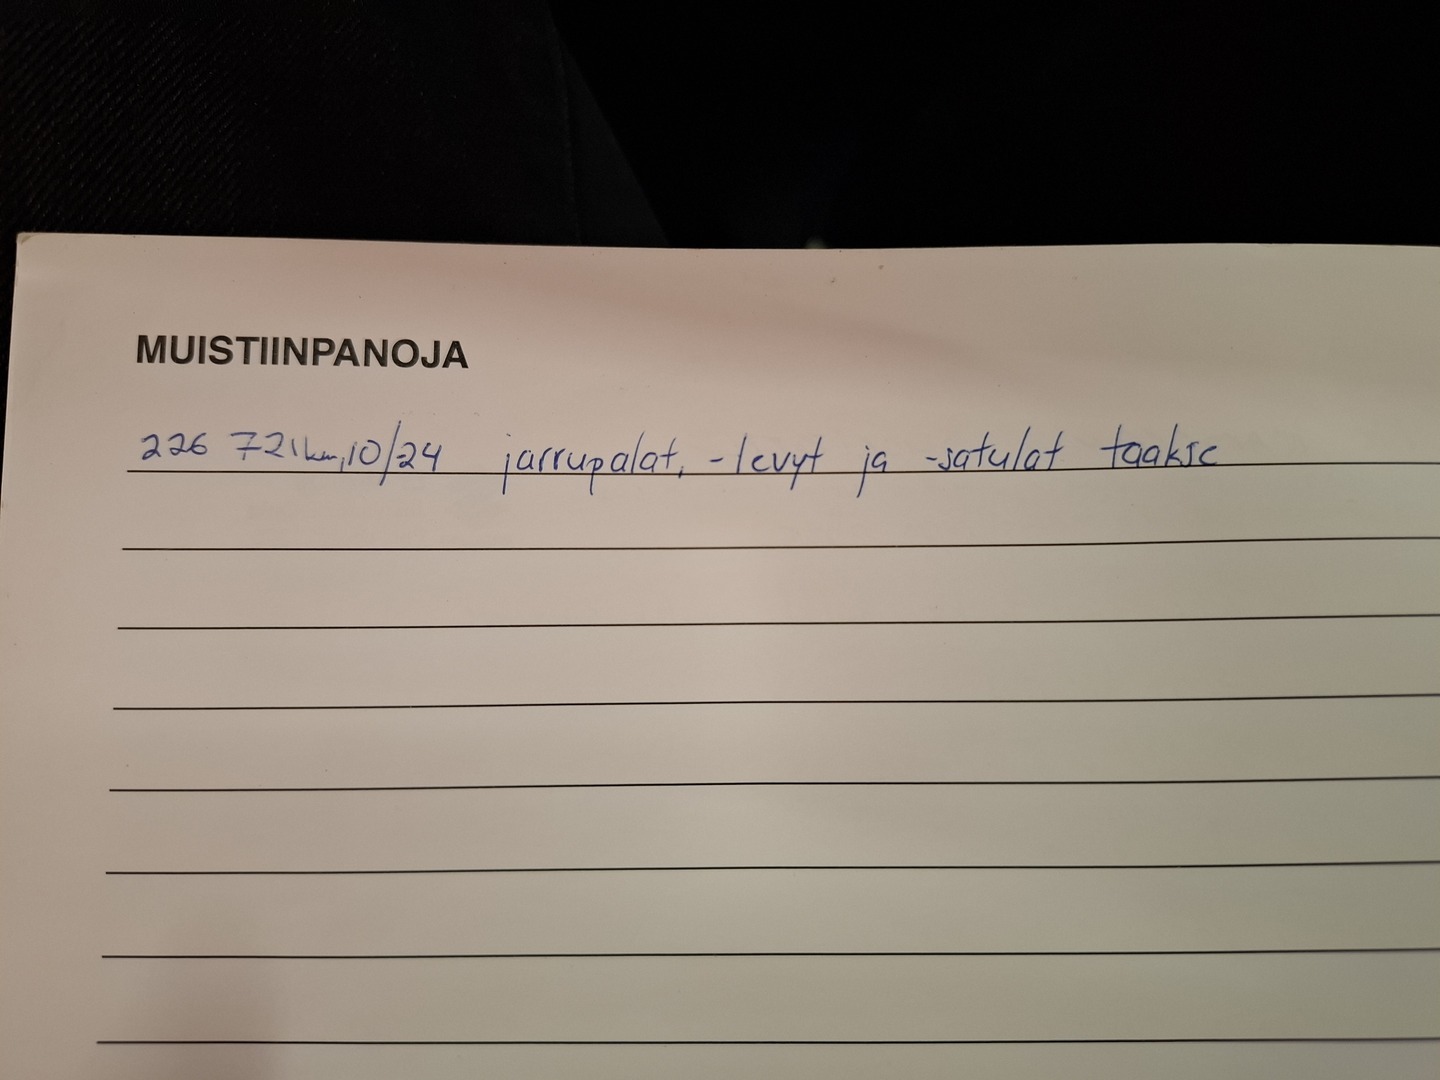 MUISTIINPANOJA
226 721km, 10/24 jarrupalat, -levyt ja -satulat taakse